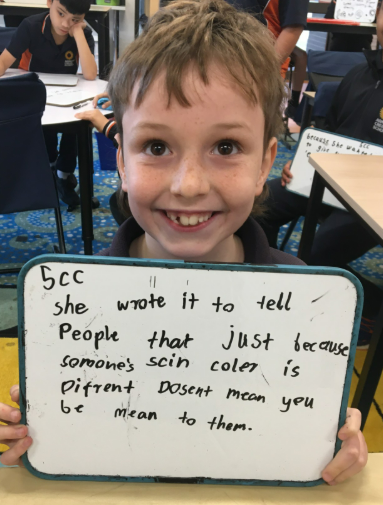 5CC
She wrote it to tell
People that just because
somone's scin coler is
Difrent Dosent mean you
be mean to them.
because she wan